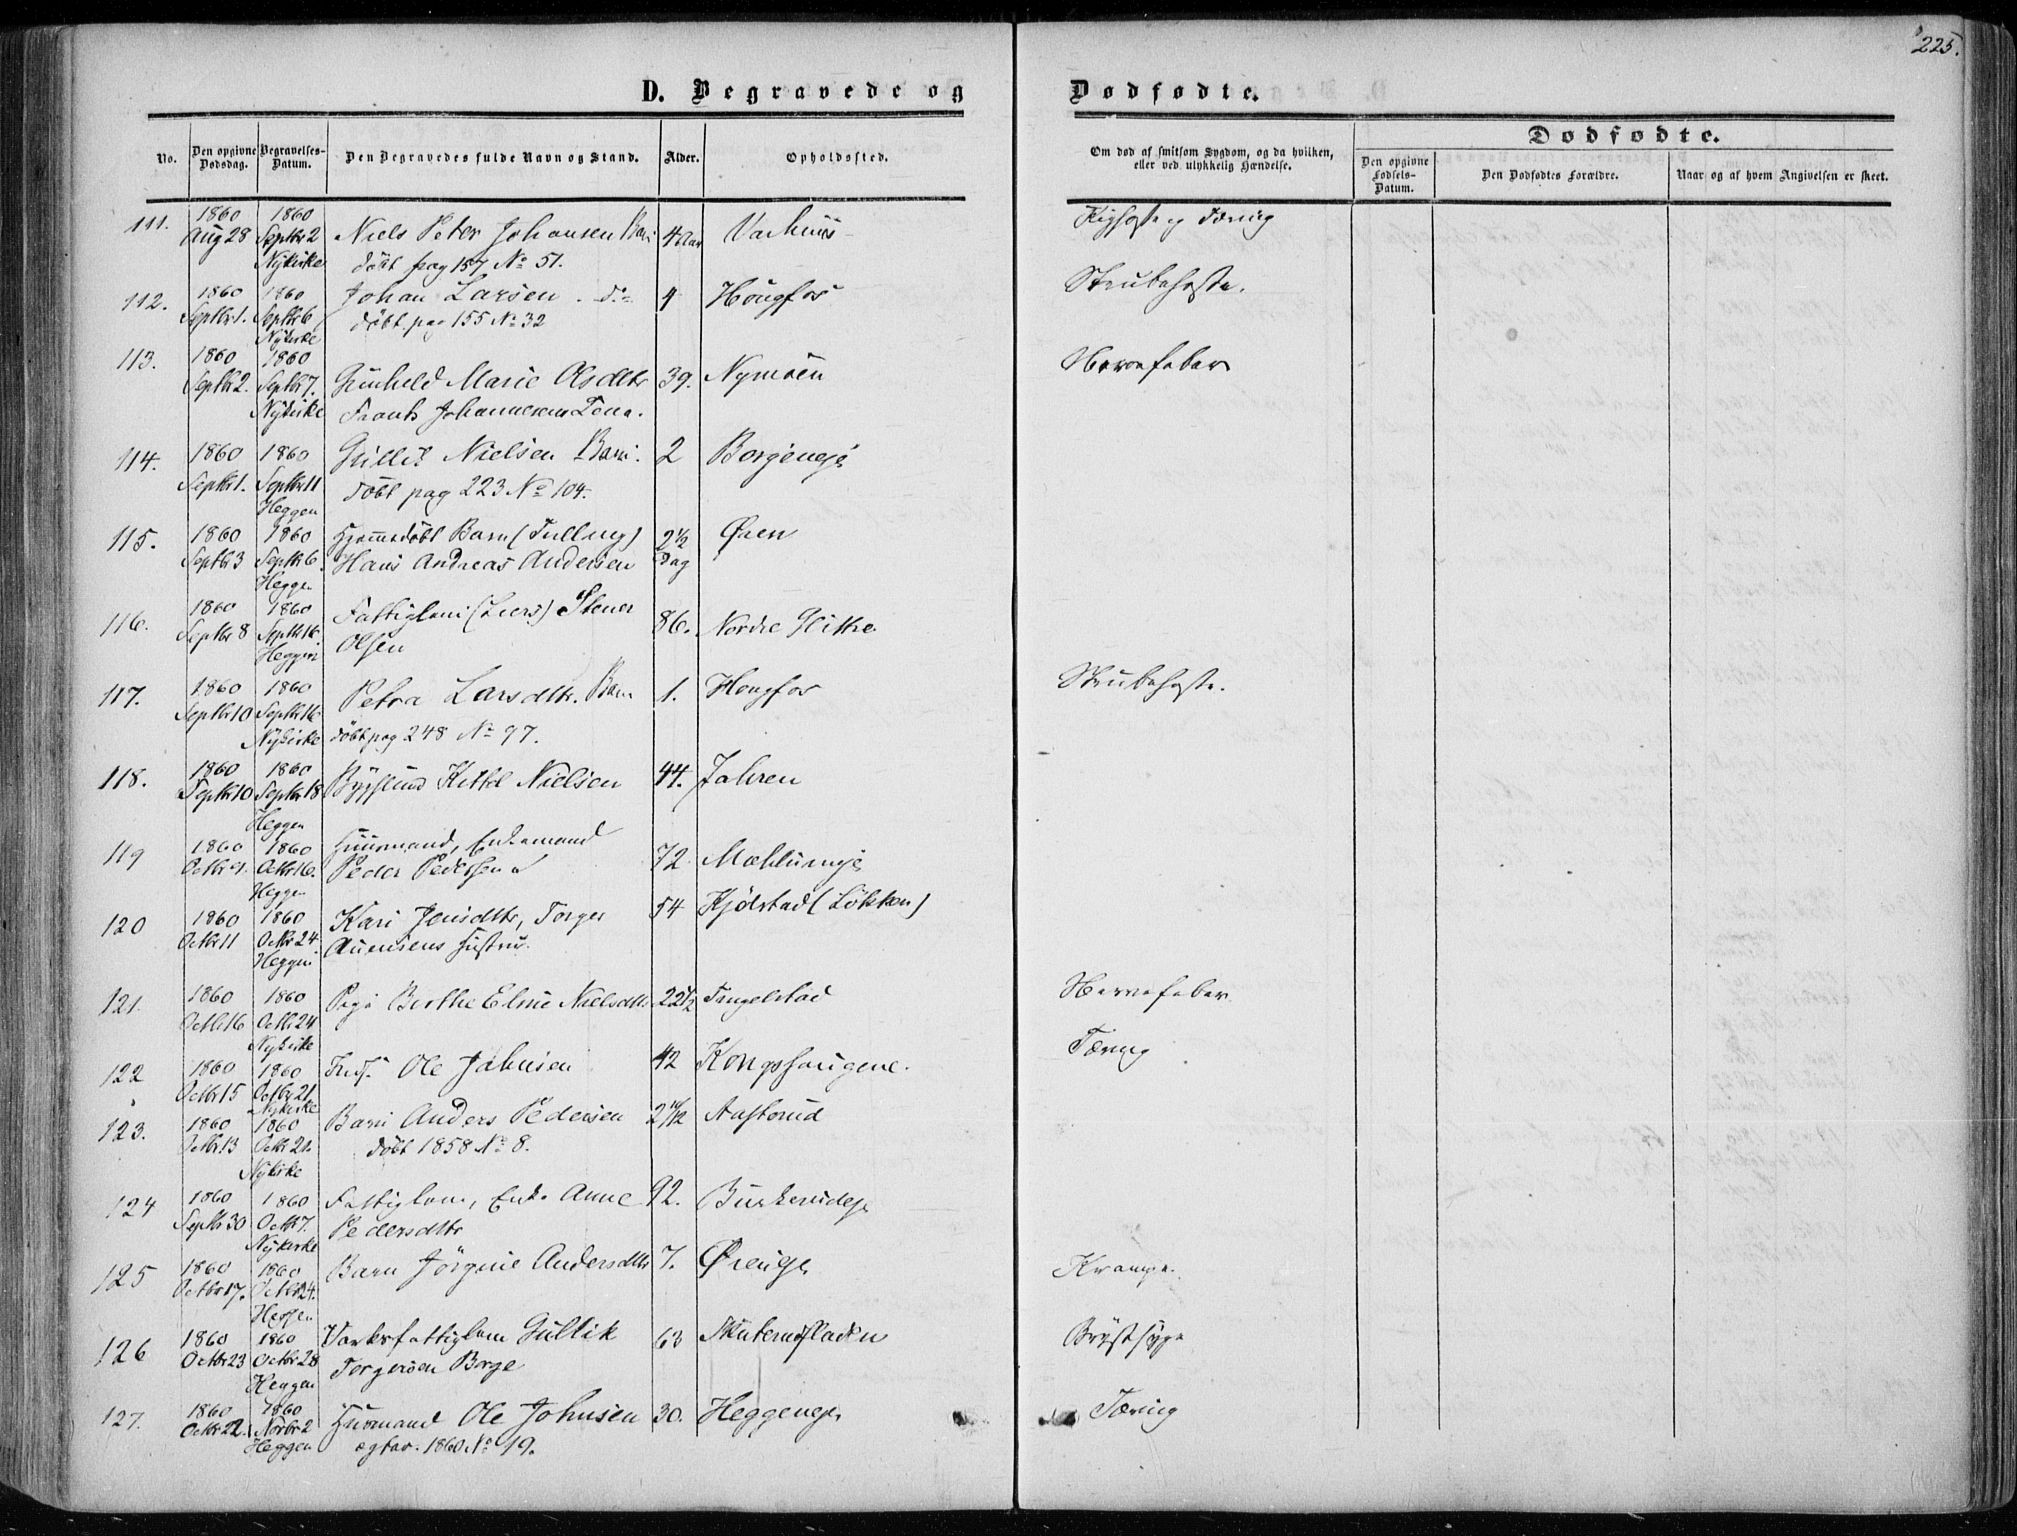 225.
D. Begravede og Dødfødte.
Dødfødte.
No.
Den opgivne Dødsdag.
Begravelses-Datum.
Den Begravedes fulde Navn og Stand.
Alder.
Opholdssted.
Om død af smitsom Sygdom, og da hvilken, eller ved ulykkelig Hændelse.
Den opgivne Fødsels-Datum.
Den Dødfødtes Forældre.
Naar og af hvem Angivelsen er skeet.
111. 1860 1860
Aug 28 Septbr 2 Niels Peter Johansen Barn 4 Aar
Nykirke döbt pag 157 No 51.
112. 1860 1860 Johan Larsen. do 4 Hougfos Strubehoste.
Septbr 1. Septbr 6 döbt pag 155 No 32
Nykirke
113. 1860 1860
Septbr 2. Septbr 7. Gunhild Marie Olsdtr 39. Nymoen Nervefeber
Nykirke
114. 1860 1860 Nielsen Barn. 2
Septbr 1. Septbr 11 döbt pag 223 No 104.
Heggen
115. 1860 1860 Hjemmedöbt Barn (Tvilling) 2 1/2 Øren
Septbr 3 Septbr 6. Hans Andreas Andersen Dag
Heggen
116. 1860 1860 Fattiglem Stener 86. Nordre
Septbr 8 Septbr 16. Olsen
Heggen
117. 1860 1860 Petra Larsdtr. Barn 1. Hougfos Strubehoste.
Septbr 10 Septbr 16
Nykirke döbt pag 248 No 97.
118. 1860 1860 Kittel Nielsen 44. Jahren
Septbr 10 Septbr 18
Heggen
119 1860 1860 Huusmand, Enkemand
Octbr 9. Octbr 16. Peder Pedersen 72
Heggen
120 1860 1860 Kari Jensdtr, Torger 54 Kjölstad (Lökken)
Octbr 11 Octbr 24 Hustru.
Heggen
121. 1860 1860 Pige Berthe Eline Nielsdtr 22 1/2 Tingelstad Nervefeber
Octbr 16 Octbr 24
Nykirke
122 1860 1860 Inds. Ole Johnsen 42 Kongshougene. Tæring
Octbr 15 Octbr 21
Nykirke
123. 1860 1860 Barn Anders Pedersen 2 10/12 Aasterud
Octbr 13 Octbr 21. döbt 1858 No 8.
Nykirke
124 1860 1860 Fattiglem, Enke Anne 92.
Septbr 30 Octbr 7. Pedersdtr
Nykirke
125 1860 1860 Barn Jörgine Andersdtr 7. Krampe.
Octbr 17. Octbr 24.
Heggen
126 1860 1860 fattiglem Gullik 63 Brystsyge
Octbr 23 Octbr 28 Torgersen Borge
Heggen
127. 1860 1860 Huusmand Ole Johnsen 30. Heggeneje Tæring
Octbr 22. Novbr 2
Heggen 1860 No 19.